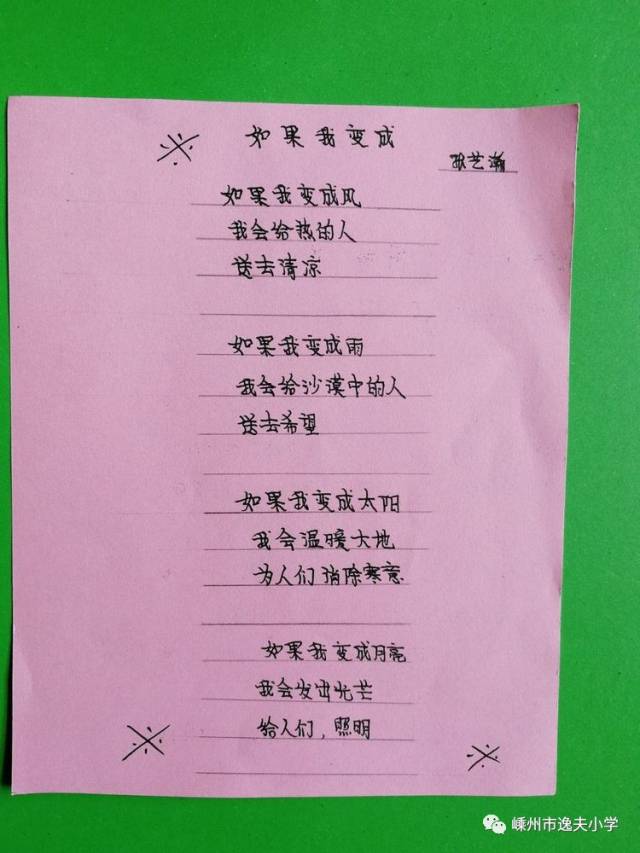 如果我变成
孙艺瀚
如果我变成风
我会给热的人
送去清凉
如果我变成雨
我会给沙漠中的人
送去希望
如果我变成太阳
我会温暖大地
为人们消除寒意
如果我变成月亮
我会发出光芒
给人们,照明
嵊州市逸夫小学